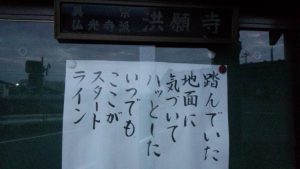 真宗
仏光寺派
洪願寺
踏んでいた
地面に
気づいて
ハッとした
いつでも
ここが
スタート
ライン